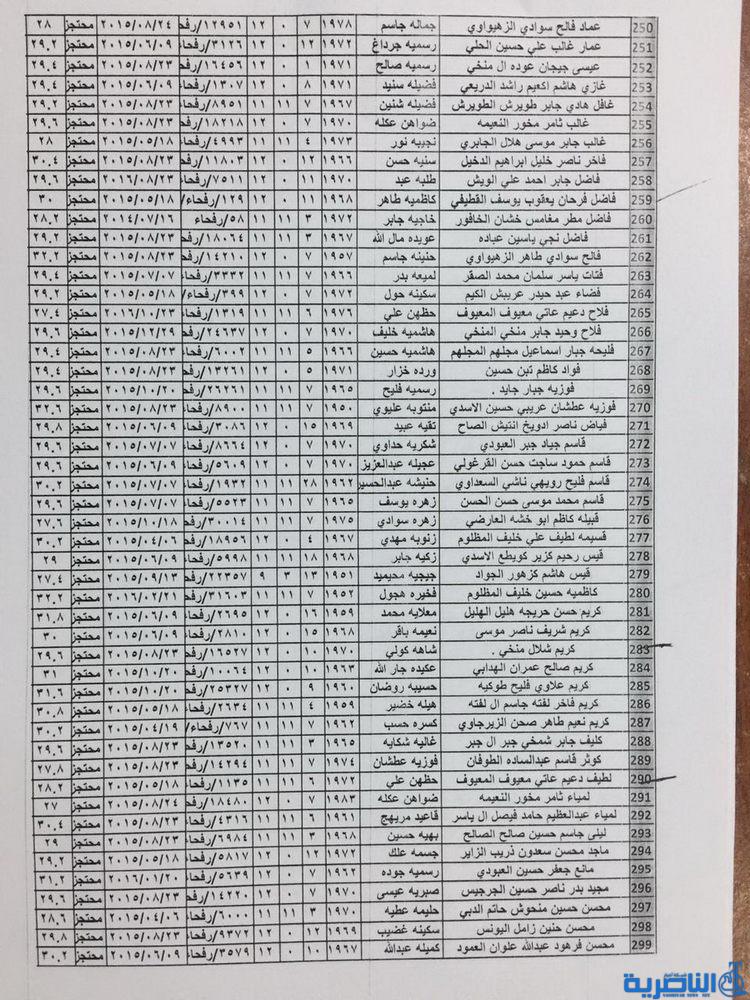 250 عماد فالح سوادي الزهيواوي جماله جاسم ١٩٧٨ ٧ ٠ ١٢ ١٢٩٥١/رفحا ٢٠١٥/٠٨/٢٤ محتجز ٢٨
251 عمار غالب علي حسين الحلي رسميه جرداغ ١٩٧٢ ١٢ ٠ ١٢ ٣١٢٦/رفحا ٢٠١٥/٠٦/٠٩ محتجز ٢٩.٢
252 عيسى جيجان عوده ال منخي رسميه صالح ١٩٧١ ١ ٠ ١٢ ١٦٤٥٦/رفح ٢٠١٥/٠٨/٢٣ محتجز ٢٩.٤
253 غازي هاشم اكعيم راشد الدريعي فضيله سنيد ١٩٧١ ٨ ٠ ١٢ ١٣٠٧/رفحا ٢٠١٥/٠٦/٠٩ محتجز ٢٩.٤
254 غافل هادي جابر طويرش الطويرش فضيله شنين ١٩٦٧ ٧ ١١ ١١ ٨٩٥١/رفحا ٢٠١٥/٠٨/٢٣ محتجز ٢٩.٢
255 غالب ثامر مخور النعيمه ضواهن عكله ١٩٧٠ ٧ ٠ ١٢ ١٨٢١٨/رفح ٢٠١٥/٠٨/٢٣ محتجز ٢٩.٦
256 غالب جابر موسى هلال الجابري نجيبه نور ١٩٧٣ ٤ ١١ ١١ ٤٩٩٣/رفحا ٢٠١٥/٠٥/١٨ محتجز ٢٨
257 فاخر ناصر خليل ابراهيم الدخيل سنيه حسن ١٩٦٦ ١٢ ٠ ١٢ ١١٨٠٣/رفح ٢٠١٥/٠٨/٢٣ محتجز ٣٠.٤
258 فاضل جابر احمد علي الويش طلبه عبد ١٩٧٠ ١١ ٠ ١٢ ٧٥١١/رفحا ٢٠١٦/٠٨/٢٣ محتجز ٢٩.٦
259 فاضل فرحان يعقوب يوسف القطيفي كاظميه طاهر ١٩٦٨ ١١ ٠ ١٢ ١٢٩/رفحاء/ ٢٠١٥/٠٥/١٨ محتجز ٣٠
260 فاضل مطر مغامس خشان الخافور خاجيه جابر ١٩٧٢ ٣ ١١ ١١ ٥٨/رفحاء ٢٠١٤/٠٧/١٦ محتجز ٢٨.٢
261 فاضل نجي ياسين عباده عويده مال الله ١٩٦٧ ٣ ١١ ١١ ١٨٠٦٤/رفح ٢٠١٥/٠٨/٢٣ محتجز ٢٩.٢
262 فالح سوادي طاهر الزهيواوي حنينه جاسم ١٩٥٧ ٧ ٠ ١٢ ١٤٢١٠/رفح ٢٠١٥/٠٨/٢٣ محتجز ٣٢.٢
263 فتات ياسر سلمان محمد الصقر لميعه بدر ١٩٦٦ ٧ ١١ ١١ ٣٣٣٢/رفحا ٢٠١٥/٠٧/٠٧ محتجز ٢٩.٤
264 فضاء عبد حيدر عريبش الكيم سكينه حول ١٩٧٢ ٧ ٠ ١٢ ٣٩٩/رفحاء/ ٢٠١٥/٠٥/١٨ محتجز ٢٩.٢
265 فلاح دعيم عاتي معيوف المعيوف حظهن علي ١٩٧٦ ٦ ١١ ١١ ١٣١٩/رفحا ٢٠١٦/١٠/٢٣ محتجز ٢٧.٤
266 فلاح وحيد جابر منخي المنخي هاشميه خليف ١٩٧٠ ٧ ٠ ١٢ ٢٤٦٣٧/رفح ٢٠١٥/١٢/٢٩ محتجز ٢٩.٦
267 فليحه جبار اسماعيل مجلهم المجلهم هاشميه حسين ١٩٦٦ ٥ ١١ ١١ ٦٠٠٢/رفحا ٢٠١٥/٠٨/٢٣ محتجز ٢٩.٤
268 فواد كاظم تبن حسين ورده خزار ١٩٧١ ٥ ٠ ١٢ ١٣٢٦١/رفح ٢٠١٥/٠٨/٢٣ محتجز ٢٩.٤
269 فوزيه جبار جايد . رسميه فليح ١٩٦٥ ٧ ١١ ١١ ٢٦٢٦١/رفح ٢٠١٥/١٠/٢٠ محتجز ٢٩.٦
270 فوزيه عطشان عريبي حسين الاسدي منتوبه عليوي ١٩٥٠ ٧ ١١ ١١ ٨٩٠٠/رفحا ٢٠١٥/٠٨/٢٣ محتجز ٣٢.٦
271 فياض ناصر ادويخ انتيش الصاح تقيه عبيد ١٩٦٩ ١٥ ٠ ١٢ ٣٠٨٦/رفحا ٢٠١٥/٠٦/٠٩ محتجز ٢٩.٨
272 قاسم جياد جبر العبودي شكريه حداوي ١٩٧٠ ٧ ٠ ١٢ ٨٦٦٤/رفحا ٢٠١٥/٠٧/٠٧ محتجز ٢٩.٦
273 قاسم حمود ساجت حسن القرغولي عجيله عبدالعزيز ١٩٧٠ ٧ ٠ ١٢ ٥٦٠٩/رفحا ٢٠١٥/٠٦/٠٩ محتجز ٢٩.٦
274 قاسم فليح رويهي ناشي السعداوي حنيشه عبدالحسين ١٩٦٢ ٢٨ ١١ ١١ ١٩٣٢/رفحا ٢٠١٥/٠٧/٠٧ محتجز ٣٠.٢
275 قاسم محمد موسى حسن الحسن زهره يوسف ١٩٦٥ ٧ ١١ ١١ ٥٥٢٣/رفحا ٢٠١٥/٠٧/٠٧ محتجز ٢٩.٦
276 قبيله كاظم ابو خشه العارضي زهره سوادي ١٩٧٥ ٧ ١١ ١١ ٣٠٠١٤/رفح ٢٠١٥/١٠/١٨ محتجز ٢٧.٦
277 قسيمه لطيف علي خليف المظلوم زنوبه مهدي ١٩٦٧ ٤ ٠ ١٢ ١٨٩٥٦/رفح ٢٠١٥/٠٤/٠٦ محتجز ٣٠.٢
278 قيس رحيم كزير كويطع الاسدي زكيه جابر ١٩٦٨ ١٨ ١١ ١١ ٥٩٩٨/رفحا ٢٠١٥/٠٦/٠٩ محتجز ٢٩
279 قيس هاشم كزهور الجواد جيجيه محيميد ١٩٥١ ١٣ ٣ ٩ ٢٢٣٥٧/رفح ٢٠١٥/٠٩/١٣ محتجز ٢٧.٤
280 كاظميه حسين خليف المظلوم فخيره هجول ١٩٥٢ ٧ ١١ ١١ ٣١٦٠٣/رفح ٢٠١٦/٠٢/٢١ محتجز ٣٢.٢
281 كريم حسن حريجه هليل الهليل معلايه محمد ١٩٥٩ ١٦ ٠ ١٢ ٢٦٩٥/رفحا ٢٠١٥/٠٦/٠٩ محتجز ٣١.٨
282 كريم شريف ناصر موسى نعيمه باقر ١٩٦٨ ١٥ ٠ ١٢ ٢٨١٠/رفحا ٢٠١٥/٠٦/٠٩ محتجز ٣٠
283 كريم شلال منخي . شاهه كولي ١٩٧٠ ١٠ ٠ ١٢ ١٦٥٢٧/رفح ٢٠١٥/٠٨/٢٣ محتجز ٢٩.٦
284 كريم صالح عمران الهدابي عكيده جار الله ١٩٦٣ ١٠ ٠ ١٢ ١٠٠٦٤/رفح ٢٠١٥/١٠/٢٠ محتجز ٣١
285 كريم علاوي فليح طوكيه حسيبه روضان ١٩٦٠ ٩ ٠ ١٢ ٢٥٣٢٧/رفح ٢٠١٥/١٠/٢٠ محتجز ٣١.٦
286 كريم فاخر لفته جاسم ال لفته هيله خضير ١٩٥٩ ٤ ١١ ١١ ٢٦٣٤/رفحا ٢٠١٥/٠٥/١٨ محتجز ٣٠.٨
287 كريم نعيم طاهر صحن الزيرجاوي كسره حسب ١٩٦٢ ٧ ١١ ١١ ٧٦٧/رفحاء/ ٢٠١٥/٠٤/١٩ محتجز ٣٠.٢
288 كليف جابر شمخي جبر ال جبر غاليه شكايه ١٩٦٥ ٣ ١١ ١١ ١٣٥٢٠/رفح ٢٠١٥/٠٨/٢٣ محتجز ٢٩.٦
289 كوثر قاسم عبدالساده الطوفان فوزيه عطشان ١٩٧٤ ٧ ١١ ١١ ١٤٢٩٤/رفح ٢٠١٥/٠٨/٢٣ محتجز ٢٧.٨
290 لطيف دعيم عاتي معيوف المعيوف حظهن علي ١٩٧٢ ٦ ١١ ١١ ١١٣٥/رفحا ٢٠١٥/٠٥/١٨ محتجز ٢٨.٢
291 لمياء ثامر مخور النعيمه ضواهن عكله ١٩٨٣ ٧ ٠ ١٢ ١٨٤٨٠/رفح ٢٠١٥/٠٨/٢٤ محتجز ٢٧
292 لمياء عبدالعظيم حامد فيصل ال ياسر قاعيد مريهج ١٩٦١ ٦ ١١ ١١ ٤٣١٦/رفحا ٢٠١٥/٠٨/٢٣ محتجز ٣٠.٤
293 ليلى جاسم حسين صالح الصالح بهيه حسين ١٩٦٨ ٣ ١١ ١١ ٦٩٨٤/رفحا ٢٠١٥/٠٨/٢٣ محتجز ٢٩
294 ماجد محسن سعدون ذريب الزاير جسمه علك ١٩٧٢ ١٢ ٠ ١٢ ٥٨١٧/رفحا ٢٠١٥/٠٥/١٨ محتجز ٢٩.٢
295 مانع جعفر حسين العبودي رسميه جوده ١٩٦٢ ٧ ٠ ١٢ ٥٦٣٩/رفحا ٢٠١٦/٠١/٢٠ محتجز ٣١.٢
296 مجيد بدر ناصر حسين الجرجيس صبريه عيسى ١٩٧٠ ٧ ٠ ١٢ ١٤٢٢٠/رفح ٢٠١٥/٠٨/٢٣ محتجز ٢٩.٦
297 محسن حسين منحوش حاتم الدبي حليمه عطيه ١٩٧٠ ٣ ١١ ١١ ٦٠٠٠/رفحا ٢٠١٥/٠٤/٠٦ محتجز ٢٨.٦
298 محسن حنين زامل اليونس سكينه غضيب ١٩٦٩ ١٢ ٠ ١٢ ٩٣٧٢/رفحا ٢٠١٥/٠٨/٢٣ محتجز ٢٩.٨
299 محسن فرهود عبدالله علوان العمود كميله عبدالله ١٩٦٧ ١٠ ٠ ١٢ ٣٥٧٩/رفحا ٢٠١٥/٠٦/٠٩ محتجز ٣٠.٢
شبكة أخبار
الناصرية